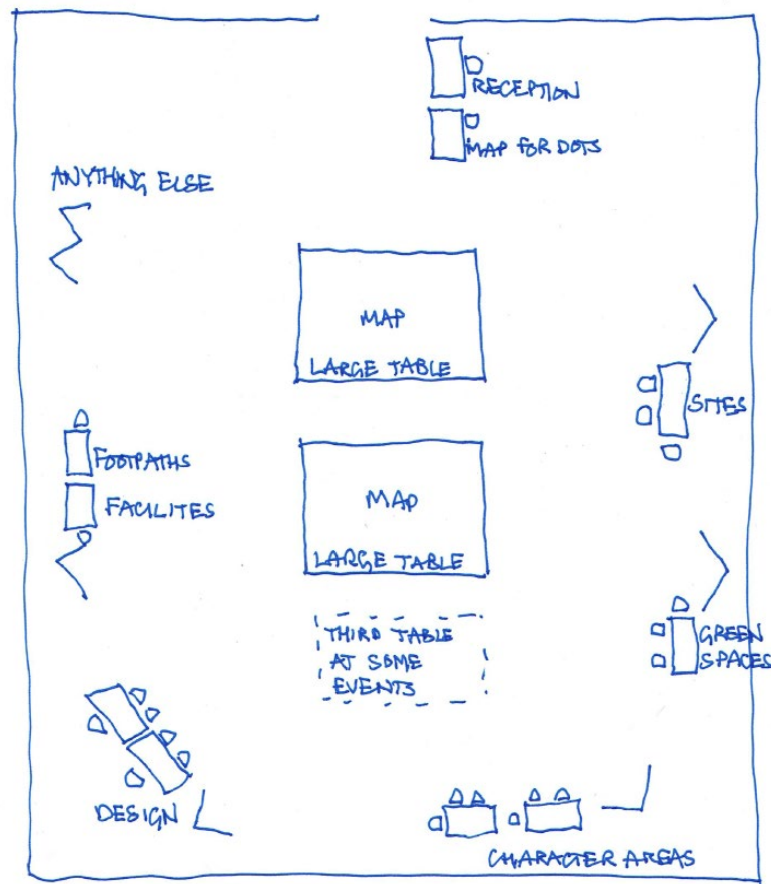 RECEPTION
MAP FOR DOTS
ANYTHING ELSE
MAP
LARGE TABLE
SITES
FOOTPATHS
FACILITES
MAP
LARGE TABLE
THIRD TABLE
AT SOME
EVENTS
GREEN
SPACES
DESIGN
CHARACTER AREAS